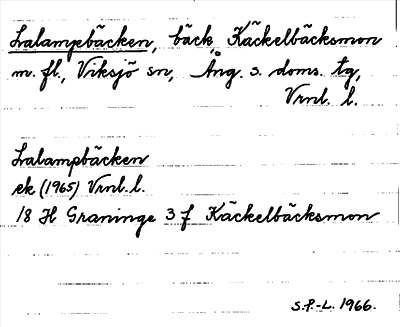 Lalampebäcken, bäck, Käckelbäcksmon
m. fl., Viksjö sn, Ång. s. doms. tg,
Vrnl. l.
Lalampbäcken
ek (1965) Vrnl. l.
18 H Graninge 3 f Käckelbäcksmon
S.P.-L. 1966.